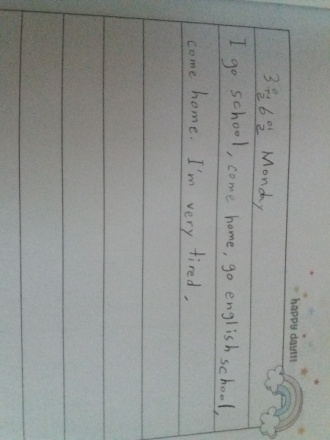 happy day!!!
3월 6일 Monday
I go school, come home, go english school,
come home. I'm very tired.